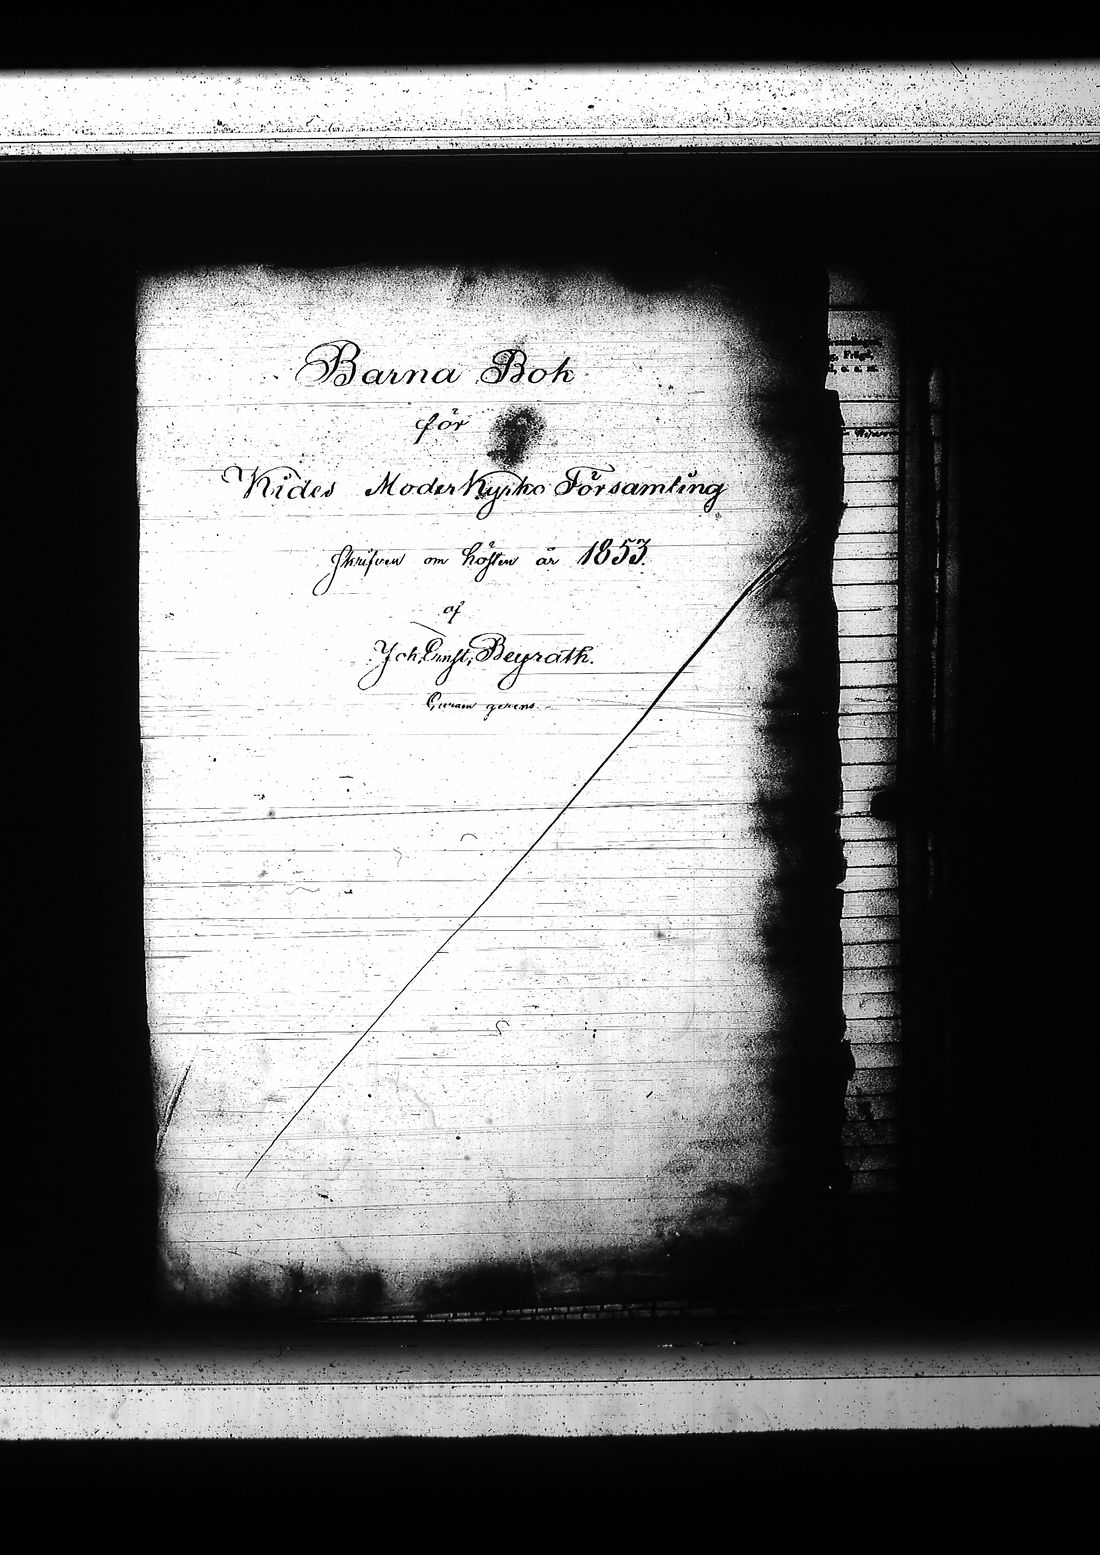 Barna Bok
för
Kides Moderkyrko Församling
skrifven om hösten år 1853.
af
Joh. Ernst, Beyrath.
Curam gerens.